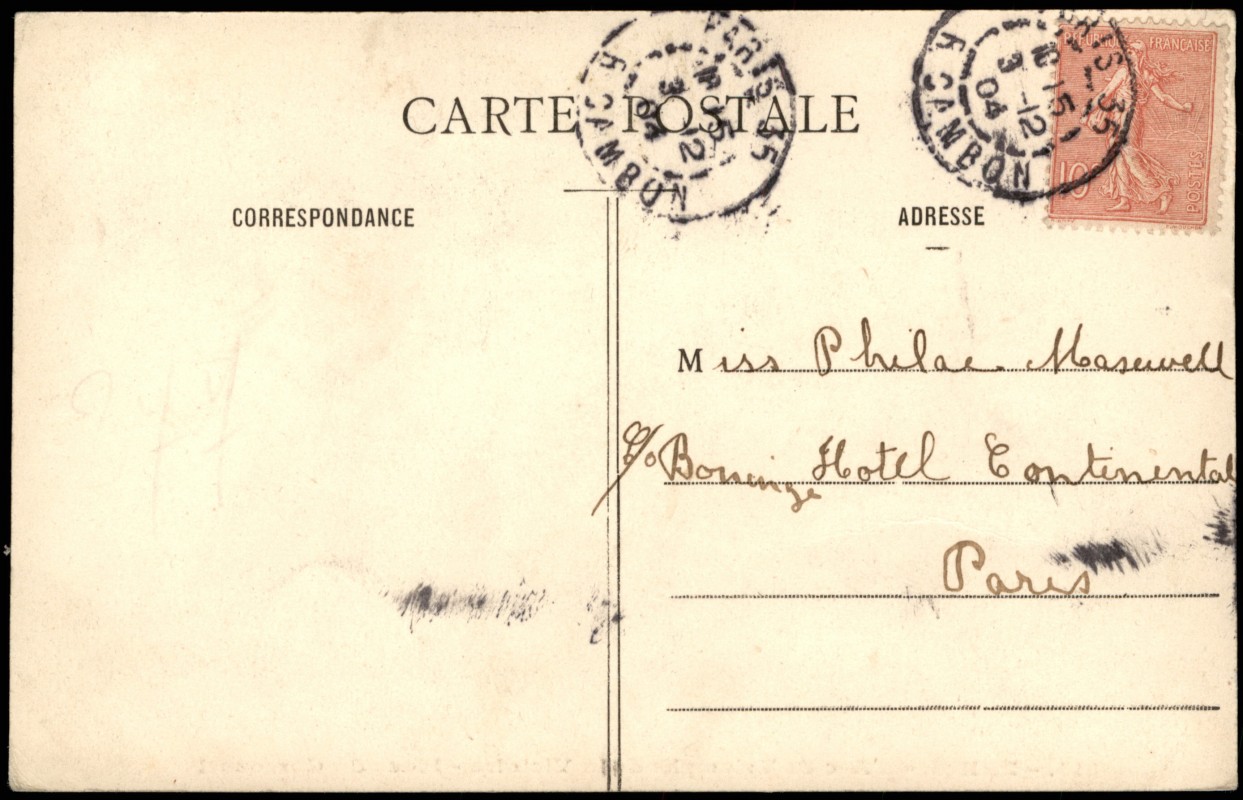 CARTE POSTALE
PARIS 35
12 15
3 -12
04
R CAMBON
PARIS 35
12 15
3 -12
04
R CAMBON
REPUBLIQUE FRANÇAISE
10c
POSTES
CORRESPONDANCE
ADRESSE
Miss Philae Maxwell
c/o Boninge Hotel Continental
Paris